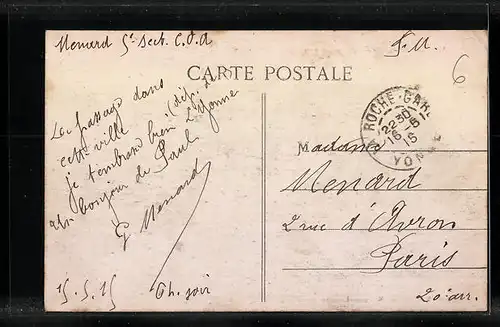 Menard 5e Sect. C.O.A
F.M.
6
CARTE POSTALE
De passage dans
cette ville (dép. de
je t'embrasse bien L'Yonne
un bonjour de Paul
G Menard
15.5.15 9h. soir
LA ROCHE-GARE
22 30
16-5
15
YONNE
Madame
Menard
2 rue d'Avron
Paris
20e arr.